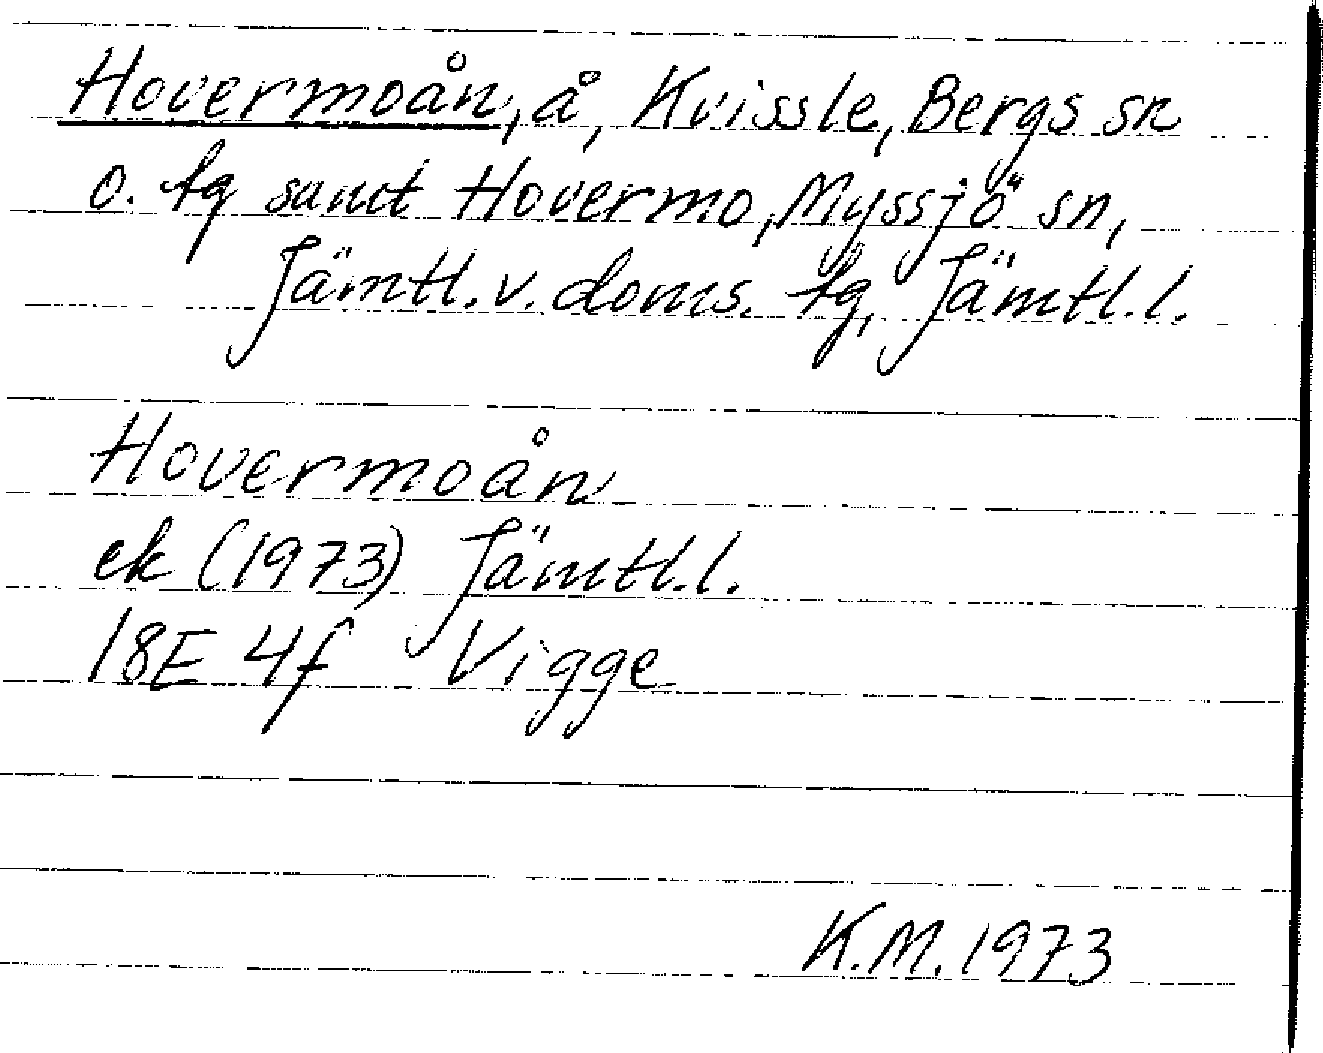 Hovermoån, å, Kvissle, Bergs sn
o. tg samt Hovermo, Myssjö sn,
Jämtl. v. doms. tg, Jämtl. l.
Hovermoån
ek (1973) Jämtl. l.
18E 4f Vigge
K.M. 1973